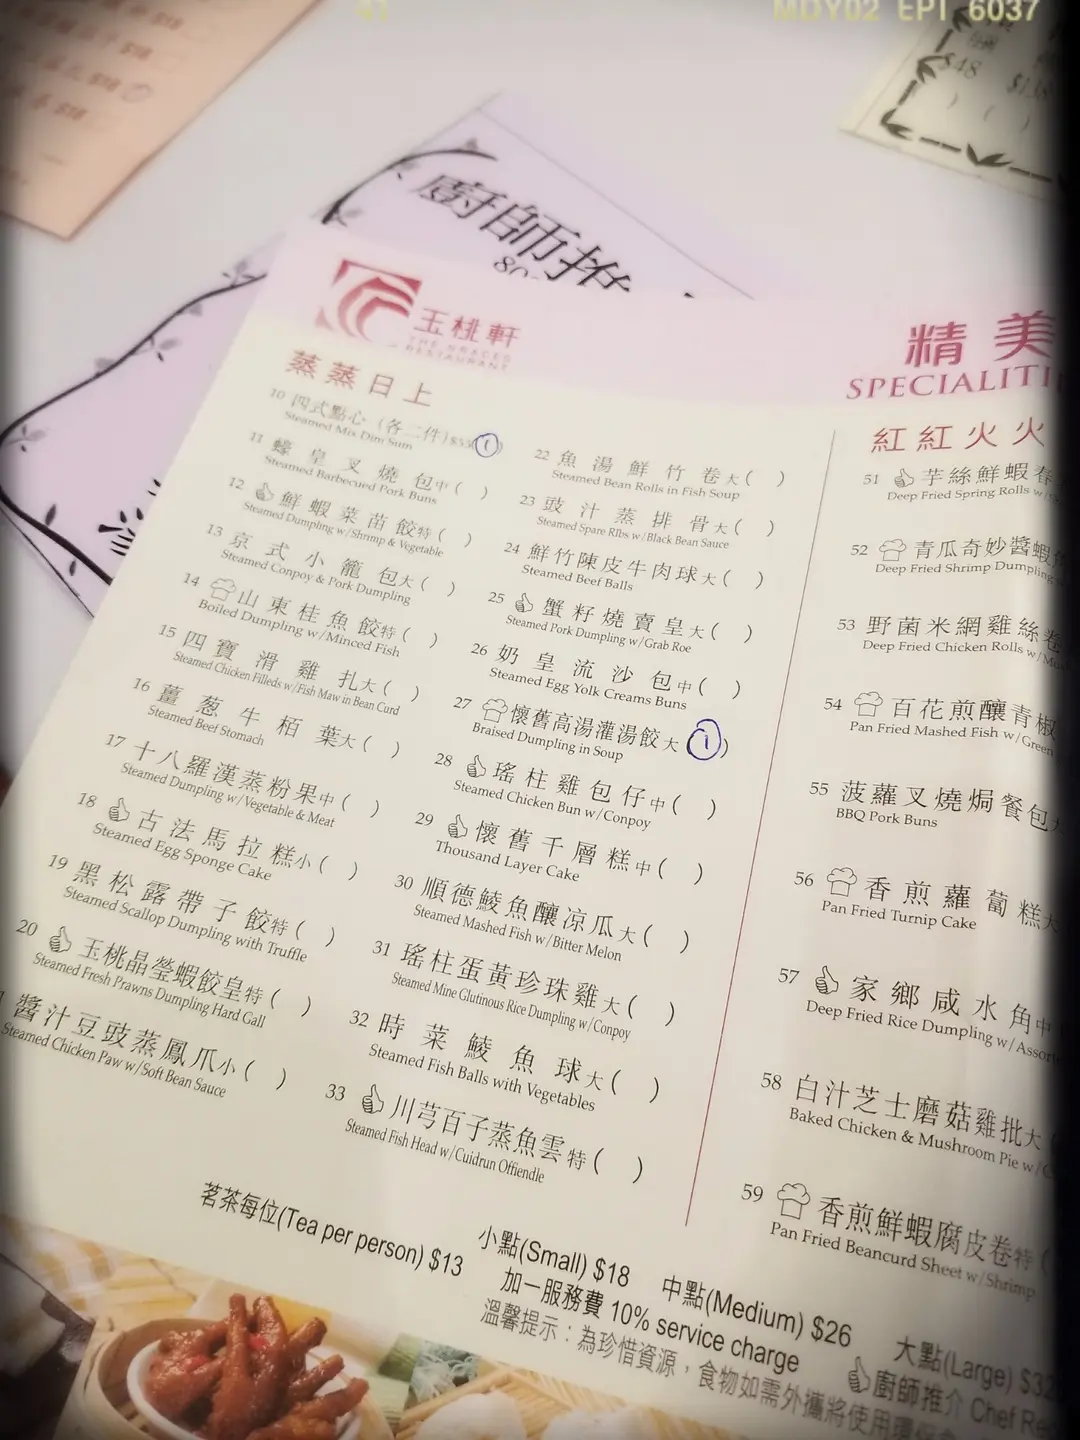 MOY02 EPT 6037
$48
廚師推
玉桃軒
THE GRACES
RESTAURANT
精美
SPECIALITI
蒸蒸日上
10 四式點心 (各二件)
Steamed Mix Dim Sum
11 蠔皇叉燒包中( )
Steamed Barbecued Pork Buns
12 鮮蝦菜苗餃特( )
Steamed Dumpling w/Shrimp & Vegetable
13 京式小籠包大( )
Steamed Conpoy & Pork Dumpling
14 山東桂魚餃特( )
Boiled Dumpling w/Minced Fish
15 四寶滑雞扎大( )
Steamed Chicken Filleds w/Fish Maw in Bean Curd
16 薑葱牛栢葉大( )
Steamed Beef Stomach
17 十八羅漢蒸粉果中( )
Steamed Dumpling w/Vegetable & Meat
18 古法馬拉糕小( )
Steamed Egg Sponge Cake
19 黑松露帶子餃特( )
Steamed Scallop Dumpling with Truffle
20 玉桃晶瑩蝦餃皇特( )
Steamed Fresh Prawns Dumpling Hard Gall
醬汁豆豉蒸鳳爪小( )
Steamed Chicken Paw w/Soft Bean Sauce
22 魚湯鮮竹卷大( )
Steamed Bean Rolls in Fish Soup
23 豉汁蒸排骨大( )
Steamed Spare RIbs w/Black Bean Sauce
24 鮮竹陳皮牛肉球大( )
Steamed Beef Balls
25 蟹籽燒賣皇大( )
Steamed Pork Dumpling w/Grab Roe
26 奶皇流沙包中( )
Steamed Egg Yolk Creams Buns
27 懷舊高湯灌湯餃大(1)
Braised Dumpling in Soup
28 瑤柱雞包仔中( )
Steamed Chicken Bun w/Conpoy
29 懷舊千層糕中( )
Thousand Layer Cake
30 順德鯪魚釀凉瓜大( )
Steamed Mashed Fish w/Bitter Melon
31 瑤柱蛋黃珍珠雞大( )
Steamed Mine Glutinous Rice Dumpling w/Conpoy
32 時菜鯪魚球大( )
Steamed Fish Balls with Vegetables
33 川芎百子蒸魚雲特( )
Steamed Fish Head w/Cuidrun Offiendle
紅紅火火
51 芋絲鮮蝦春
Deep Fried Spring Rolls
52 青瓜奇妙醬蝦
Deep Fried Shrimp Dumpling
53 野菌米網雞絲卷
Deep Fried Chicken Rolls
54 百花煎釀青椒
Pan Fried Mashed Fish w/Green
55 菠蘿叉燒焗餐包
BBQ Pork Buns
56 香煎蘿蔔糕
Pan Fried Turnip Cake
57 家鄉咸水角中
Deep Fried Rice Dumpling w/Assor
58 白汁芝士磨菇雞批大
Baked Chicken & Mushroom Pie w/
59 香煎鮮蝦腐皮卷特(
Pan Fried Beancurd Sheet w/Shrimp
茗茶每位(Tea per person) $13
小點(Small) $18 中點(Medium) $26 大點(Large) $32
加一服務費 10% service charge 廚師推介 Chef Re
溫馨提示：為珍惜資源，食物如需外攜將使用環保